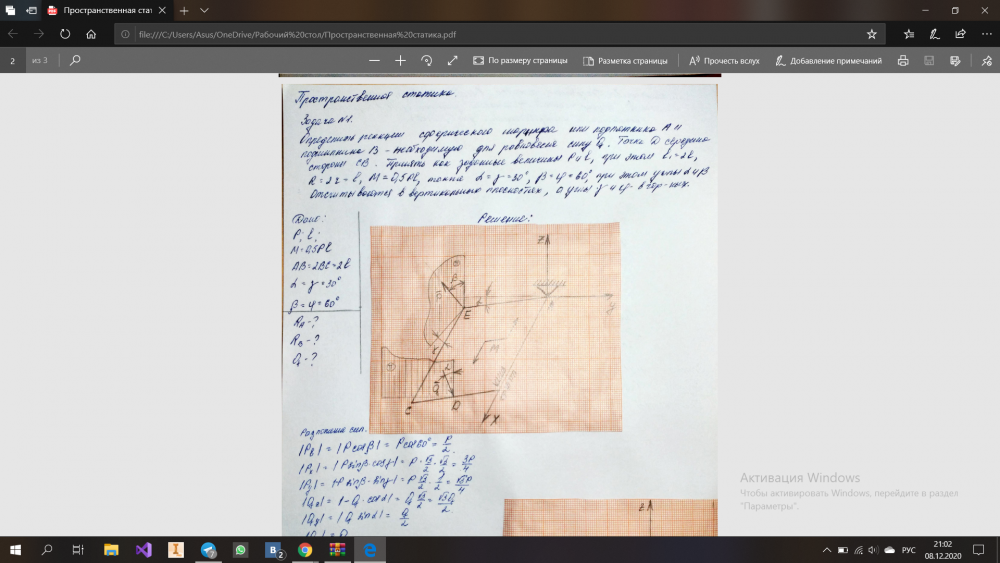 Пространственная стат
2 из 3
file:///C:/Users/Asus/OneDrive/Рабочий%20стол/Пространственная%20статика.pdf
По размеру страницы
Разметка страницы
Прочесть вслух
Добавление примечаний
Пространственная статика.
Задача №1.
Определить реакции сферического шарнира или подпятника А и
подшипника В - необходимую для равновесия силу Q. Точка D середина
стороны СВ. Принять как заданные величины P и l, при этом
R = 2r = l, M = 0,5Pl, также α = γ = 30°, β = φ = 60°, при этом углы α и β
отсчитываются в вертикальных плоскостях, а углы γ и φ - в гор-ных.
Дано:
Решение:
P; l;
M = 0,5Pl
AB = 2BC = 2l
α = γ = 30°
β = φ = 60°
R_A - ?
R_B - ?
Q - ?
Z
β
P
E
A
y
γ
M
α
Q
C
D
X
сил.
|Pcosβ| = Pcos60° = P/2
|Psinβ·cosγ| = P·√3/2·√3/2 = 3P/4
|-Psinβ·sinγ| = P·√3/2·1/2 = √3P/4
|-Q·cosα| = Q√3/2 = √3Q/2
|Q sinα| = Q/2
Z
Активация Windows
Чтобы активировать Windows, перейдите в раздел
"Параметры".
7
2
РУС
21:02
08.12.2020